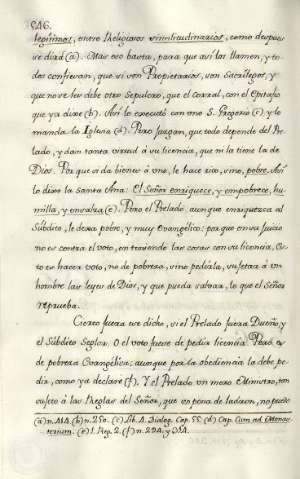 546.
legitimos, entre Religiosos vinolitudinarios, como despues
se dirà (a). Mas eso basta, para que asi los llamen, y to-
dos confiesan, que si son Propietarios, son Sacrilegos, y
que no se les debe otro Sepulcro, que el corral, con el Epitafio
que ya dixe (b). Asi lo executò con uno S. Gregorio (c) y lo
manda la Iglesia (d). Pero juzgan, que todo depende del Pre-
lado, y dan tanta virtud à su licencia, que ni la tiene la de
Dios. Por que si da bienes à uno, le hace rico, sino, pobre. Asi
lo dixo la santa Ana: El Señor enriquece, y empobrece, hu-
milla, y ensalza (e). Pero el Prelado, aunque enriquezca al
Subdito, le dexa pobre, y muy Evangelico: por que en su juicio
no es contra el voto, en teniendo las cosas con su licencia. Es-
to es hacer voto, no de pobreza, sino pedirla, sujetar à un
hombre las leyes de Dios, y que pueda salvar, lo que el Señor
reprueba.
Cierto fuera ese dicho, si el Prelado fuera Dueño, y
el Subdito Seglar. O el voto fuese de pedir licencia. Pero es
de pobreza Evangelica: aunque por la obediencia la debe pe-
dir, como ya declarè (f). Y el Prelado un mero Ministro, tan
sujeto à las Reglas del Señor, que es pena de ladron, no puede
(a) n. 414. (b) n. 250. (c) Lib. 4. Dialog. Cap. 55. (d) Cap. Cum ad Monas-
terium. (e) 1. Reg. 2. (f) n. 294. y